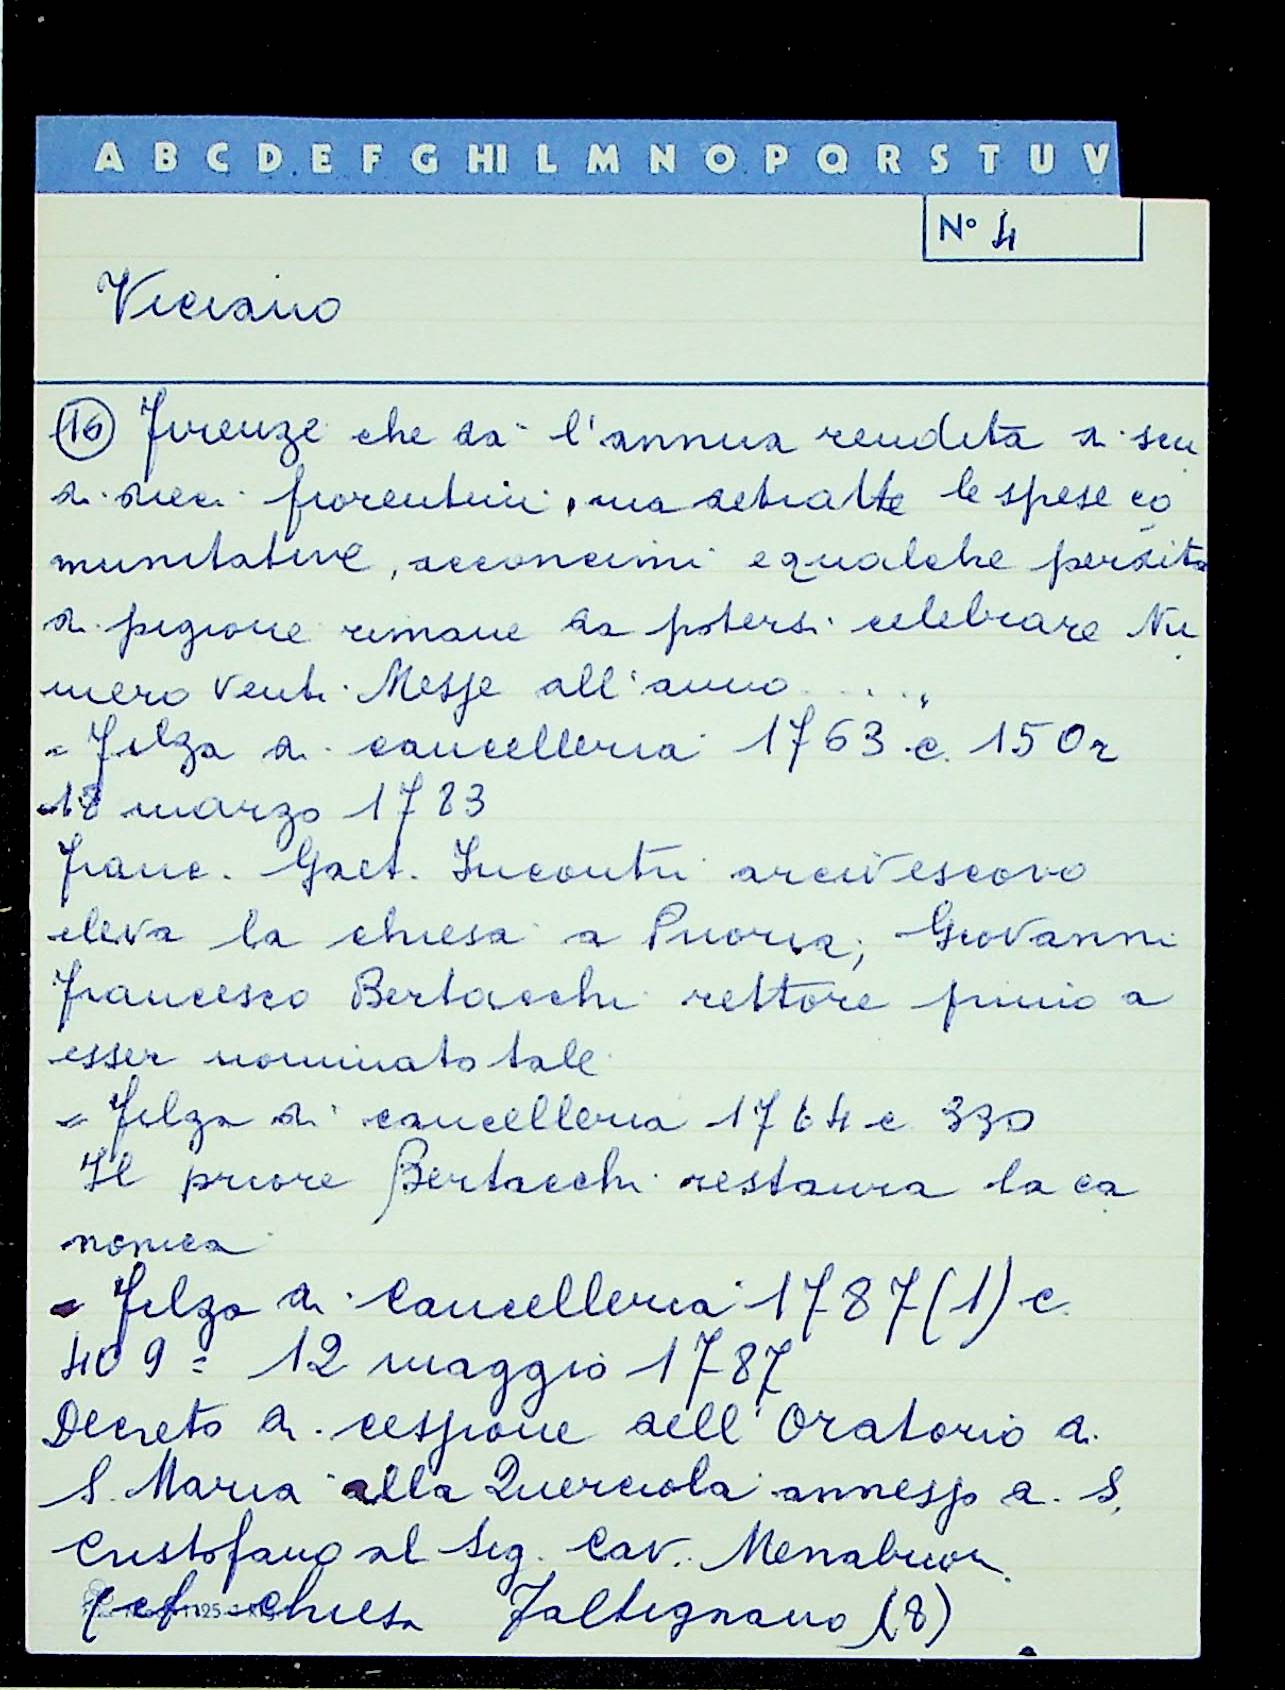 A B C D E F G HI L M N O P Q R S T U V
N° 4
Viciano
(16) Firenze che dà l'annua rendita di scu
di dieci fiorentini, ma detratte le spese co
munitative, acconcimi e qualche perdita
di pigione rimane da potersi celebrare Nu
mero venti Messe all'anno.....
= Filza di cancelleria 1763 c. 150r
18 marzo 1783
Franc. Gaet. Incontri arcivescovo
eleva la chiesa a Prioria; Giovanni
Francesco Bertacchi rettore primo a
esser nominato tale
= Filza di cancelleria 1764 c 330
Il priore Bertacchi restaura la ca
nonica
= Filza di Cancelleria 1787 (1) c.
409 = 12 maggio 1787
Decreto di cessione dell'Oratorio di
S. Maria alla Querciola annesso a S.
Cristofano al Sig. Cav. Menabuoi
(cf. chiesa Faltignano (8)